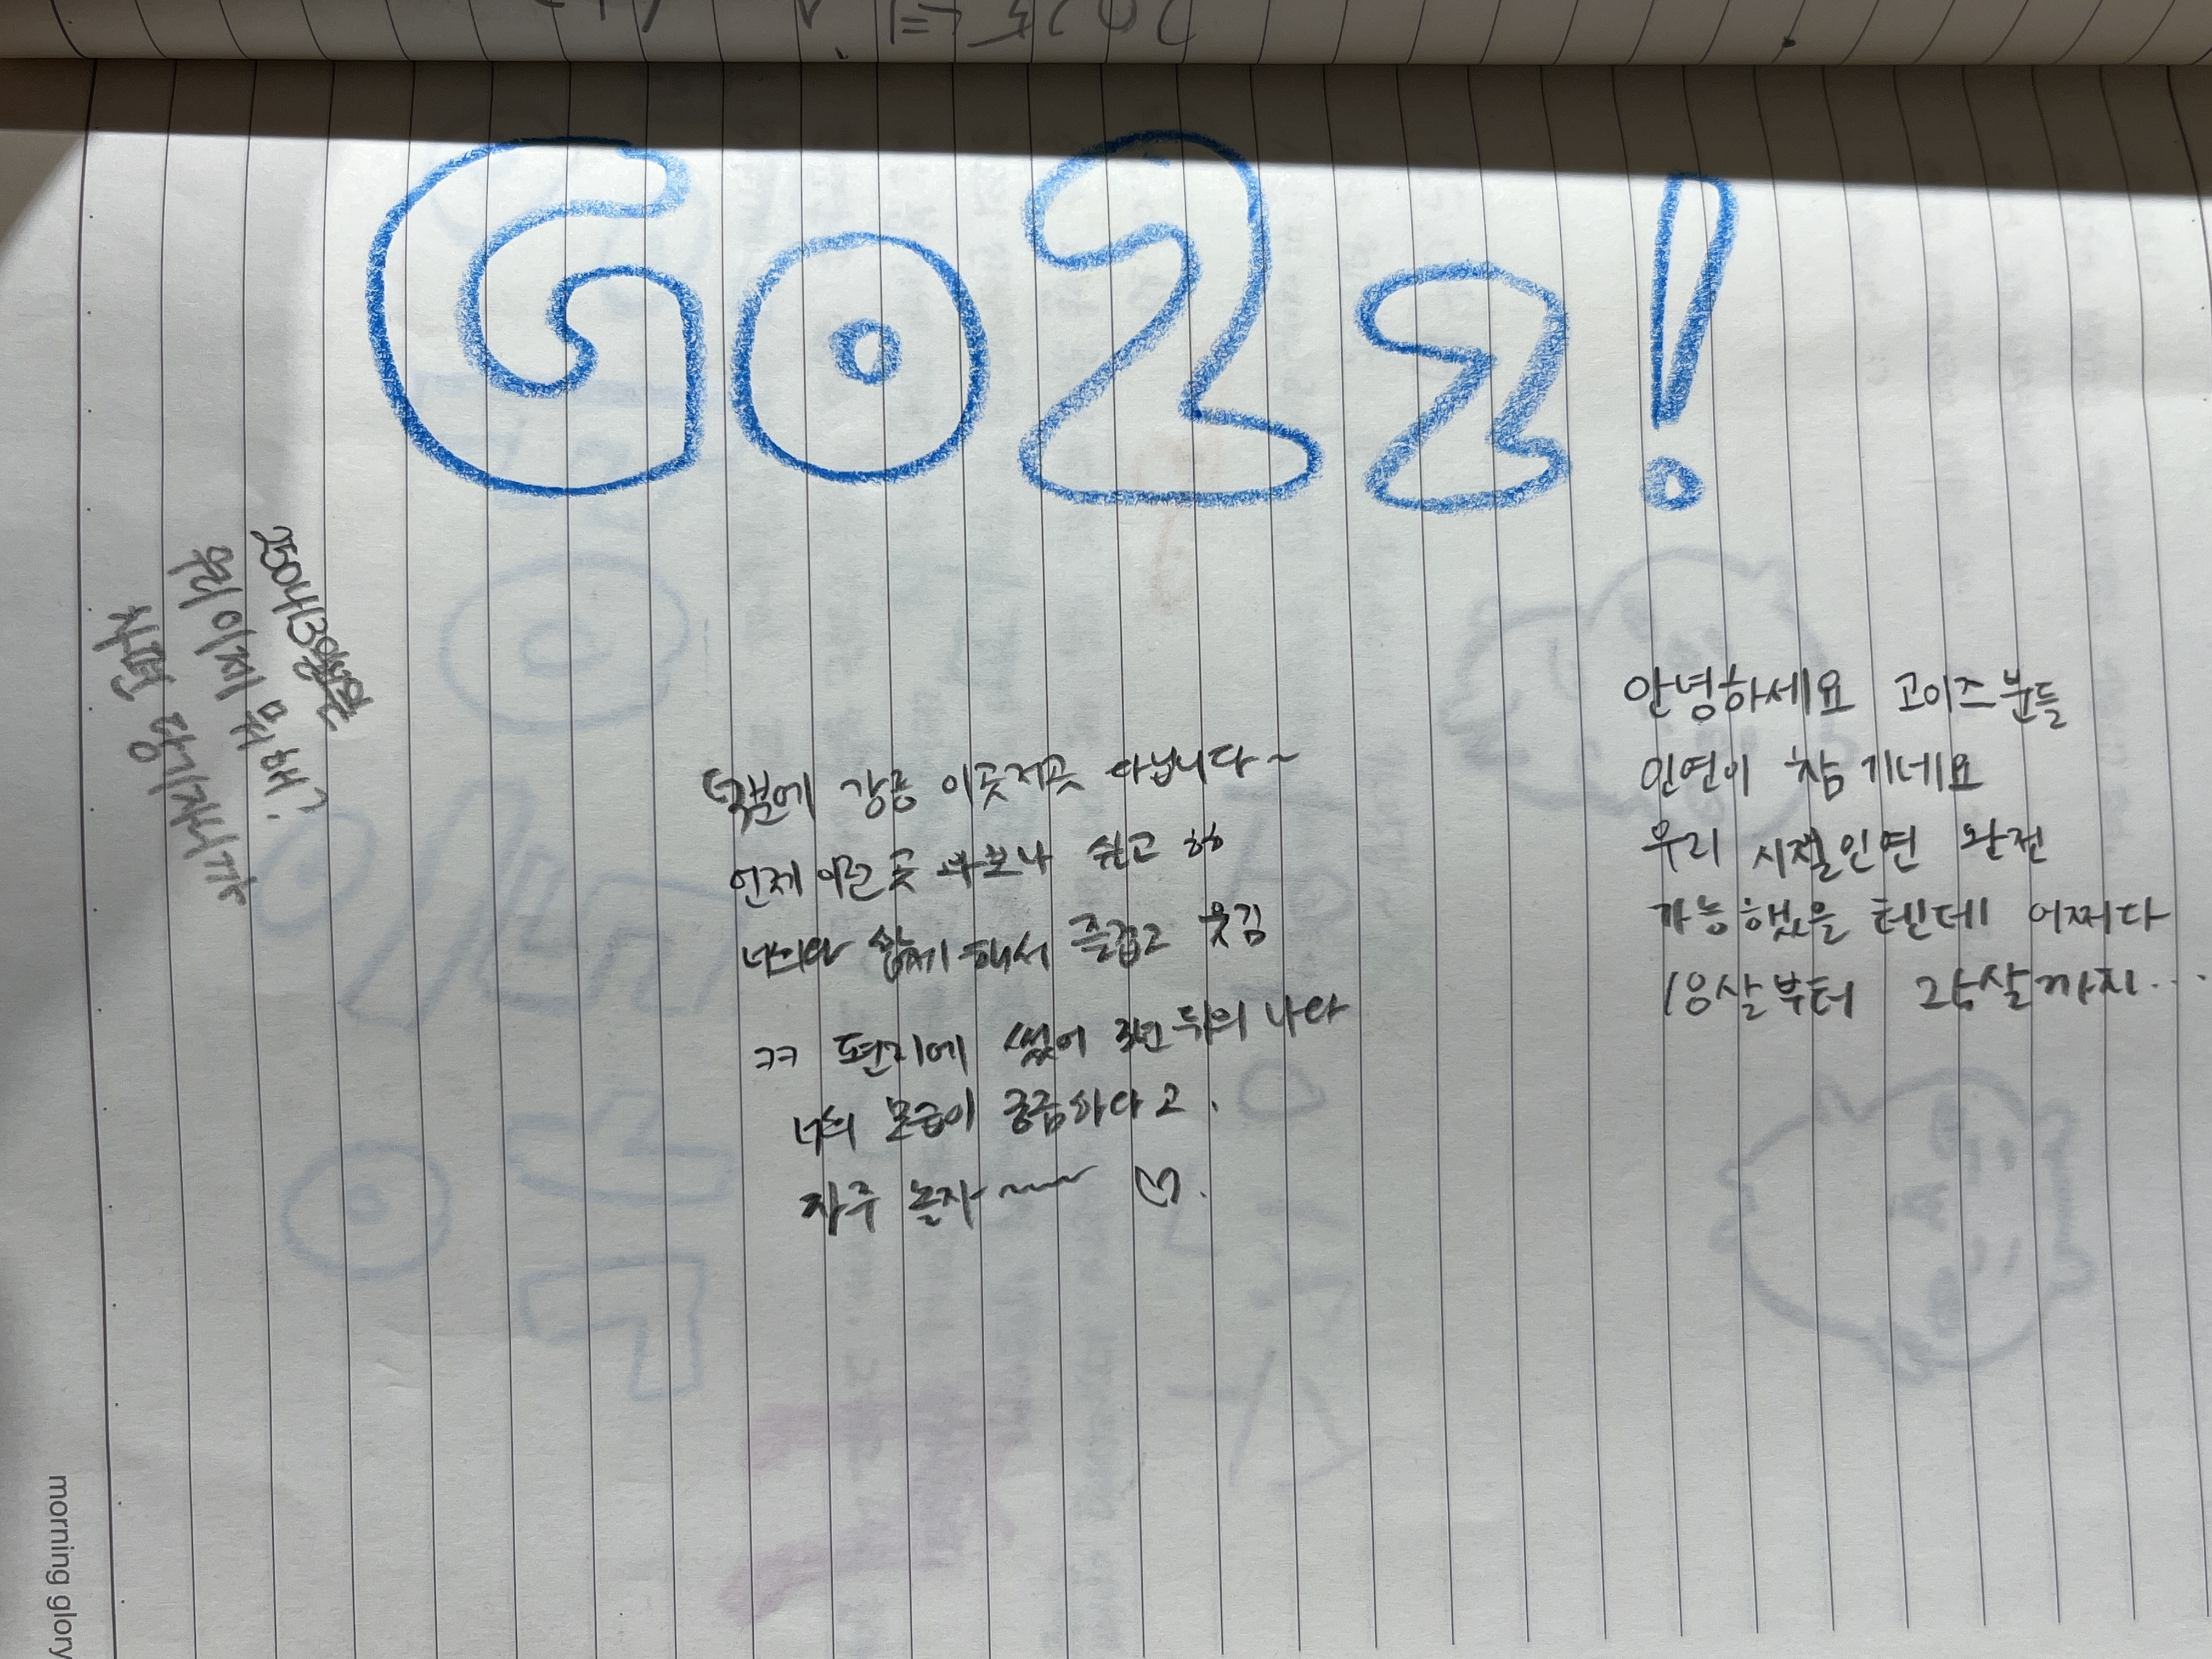 GO2z!
안녕하세요 고이즈분들
인연이 참 기네요
우리 시절인연 완전
가능했을 텐데 어쩌다
18살부터 24살까지...
덕분에 강릉 이곳저곳 다닙니다~
언제 이런 곳 와보나 싶고 ㅎㅎ
너희와 함께 해서 즐겁고 웃김
ㅋㅋ 편지에 썼어 3년 뒤의 나와
너희 모습이 궁금하다고.
자주 놀자~~~~ ♡.
morning glory